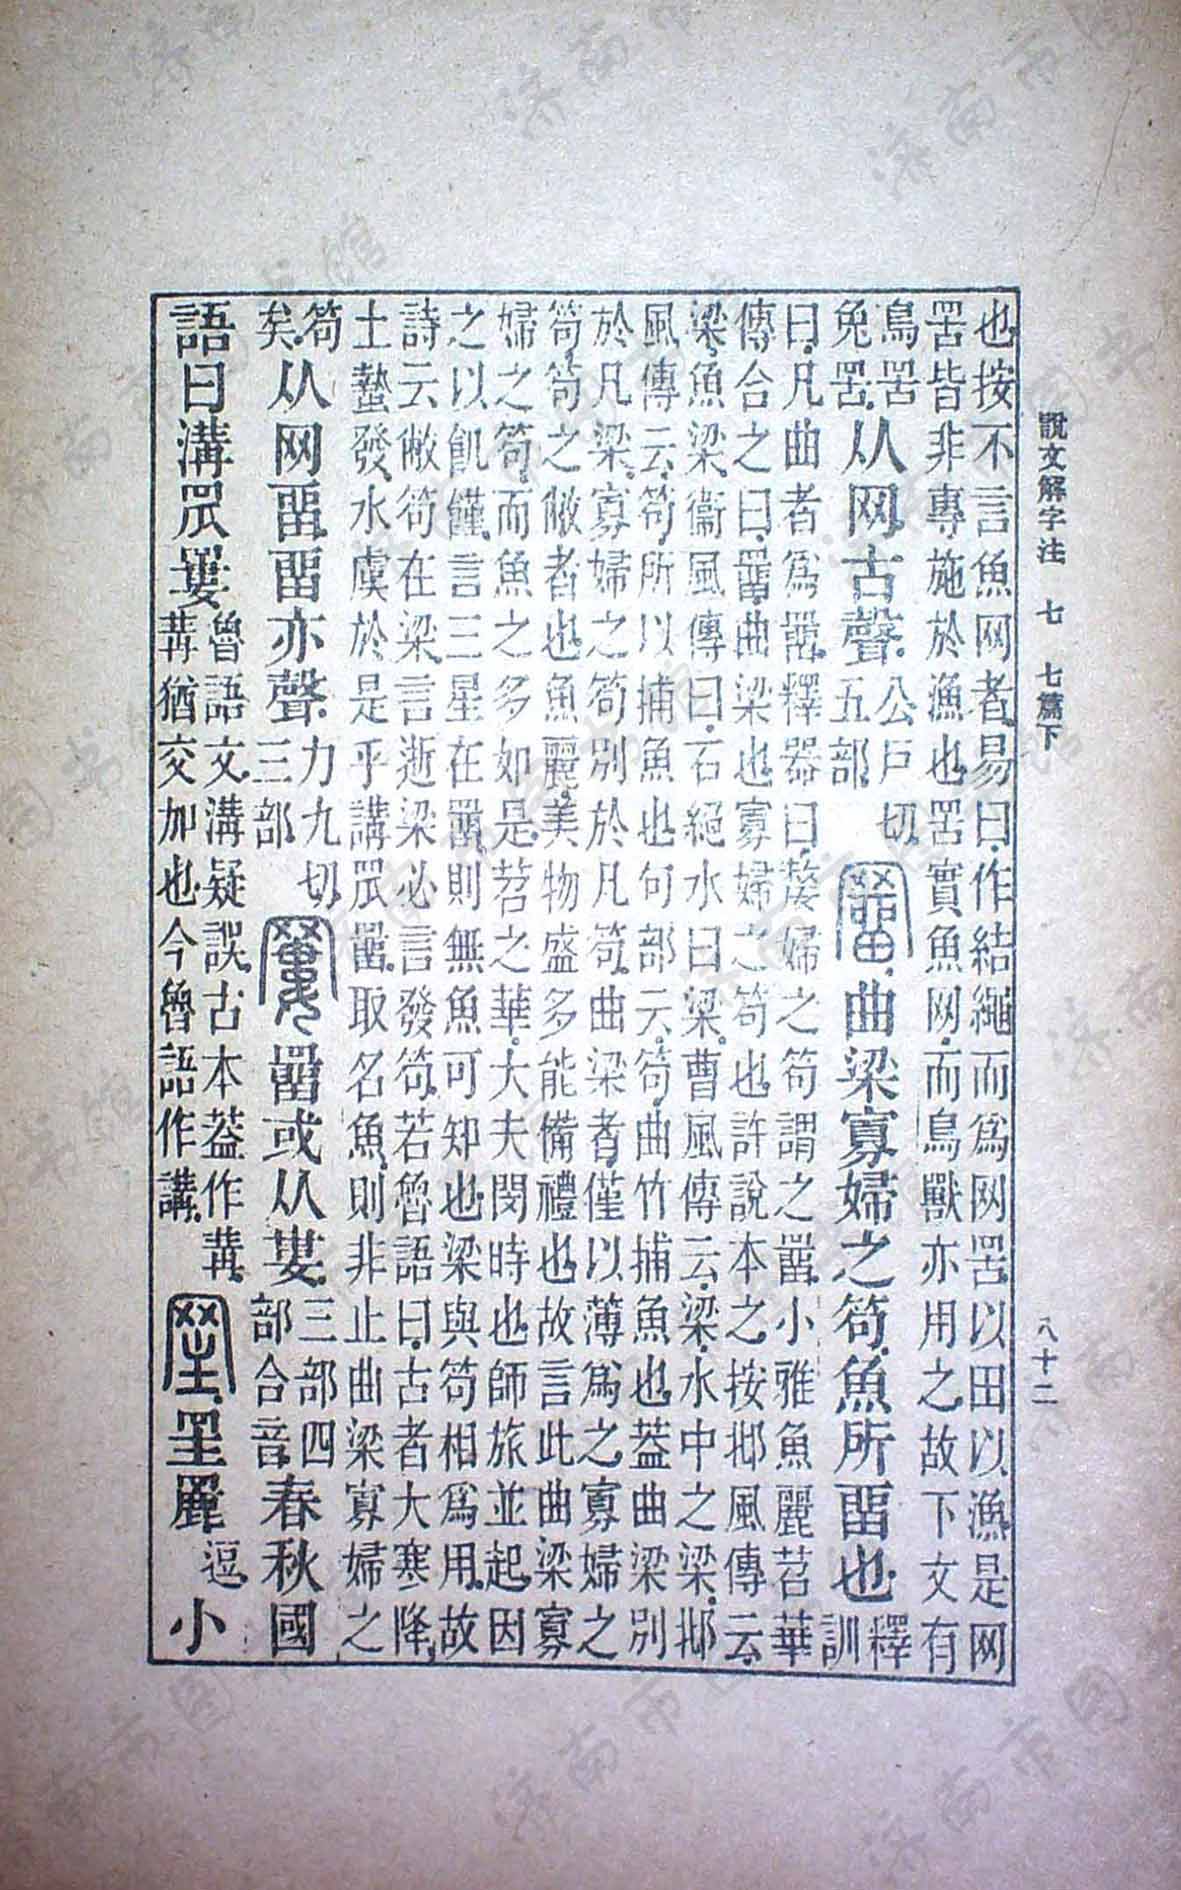 說文解字注 七 七篇下 八十二
也按不言魚网者易曰作結繩而爲网罟以田以漁是网
罟皆非專施於漁也罟實魚网而鳥獸亦用之故下文有
鳥罟兔罟从网古聲公戸切五部罶曲梁寡婦之笱魚所畱也釋訓
曰凡曲者爲罶釋器曰嫠婦之笱謂之罶小雅魚麗苕華
傳合之曰罶曲梁也寡婦之笱也許說本之按邶風傳云
梁魚梁衞風傳曰石絕水曰梁曹風傳云梁水中之梁邶
風傳云笱所以捕魚也句部云笱曲竹捕魚也葢曲梁別
於凡梁寡婦之笱別於凡笱曲梁者僅以薄爲之寡婦之
笱笱之敝者也魚麗美物盛多能備禮也故言此曲梁寡
婦之笱而魚之多如是苕之華大夫閔時也師旅並起因
之以飢饉言三星在罶則無魚可知也梁與笱相爲用故
詩云敝笱在梁言逝梁必言發笱若魯語曰古者大寒降
土蟄發水虞於是乎講罛罶取名魚則非止曲梁寡婦之
笱矣从网畱畱亦聲力九切三部䍣罶或从婁三部四部合音春秋國
語曰溝罛䍣魯語文溝疑誤古本葢作冓冓猶交加也今魯語作講罜罜䍡逗小